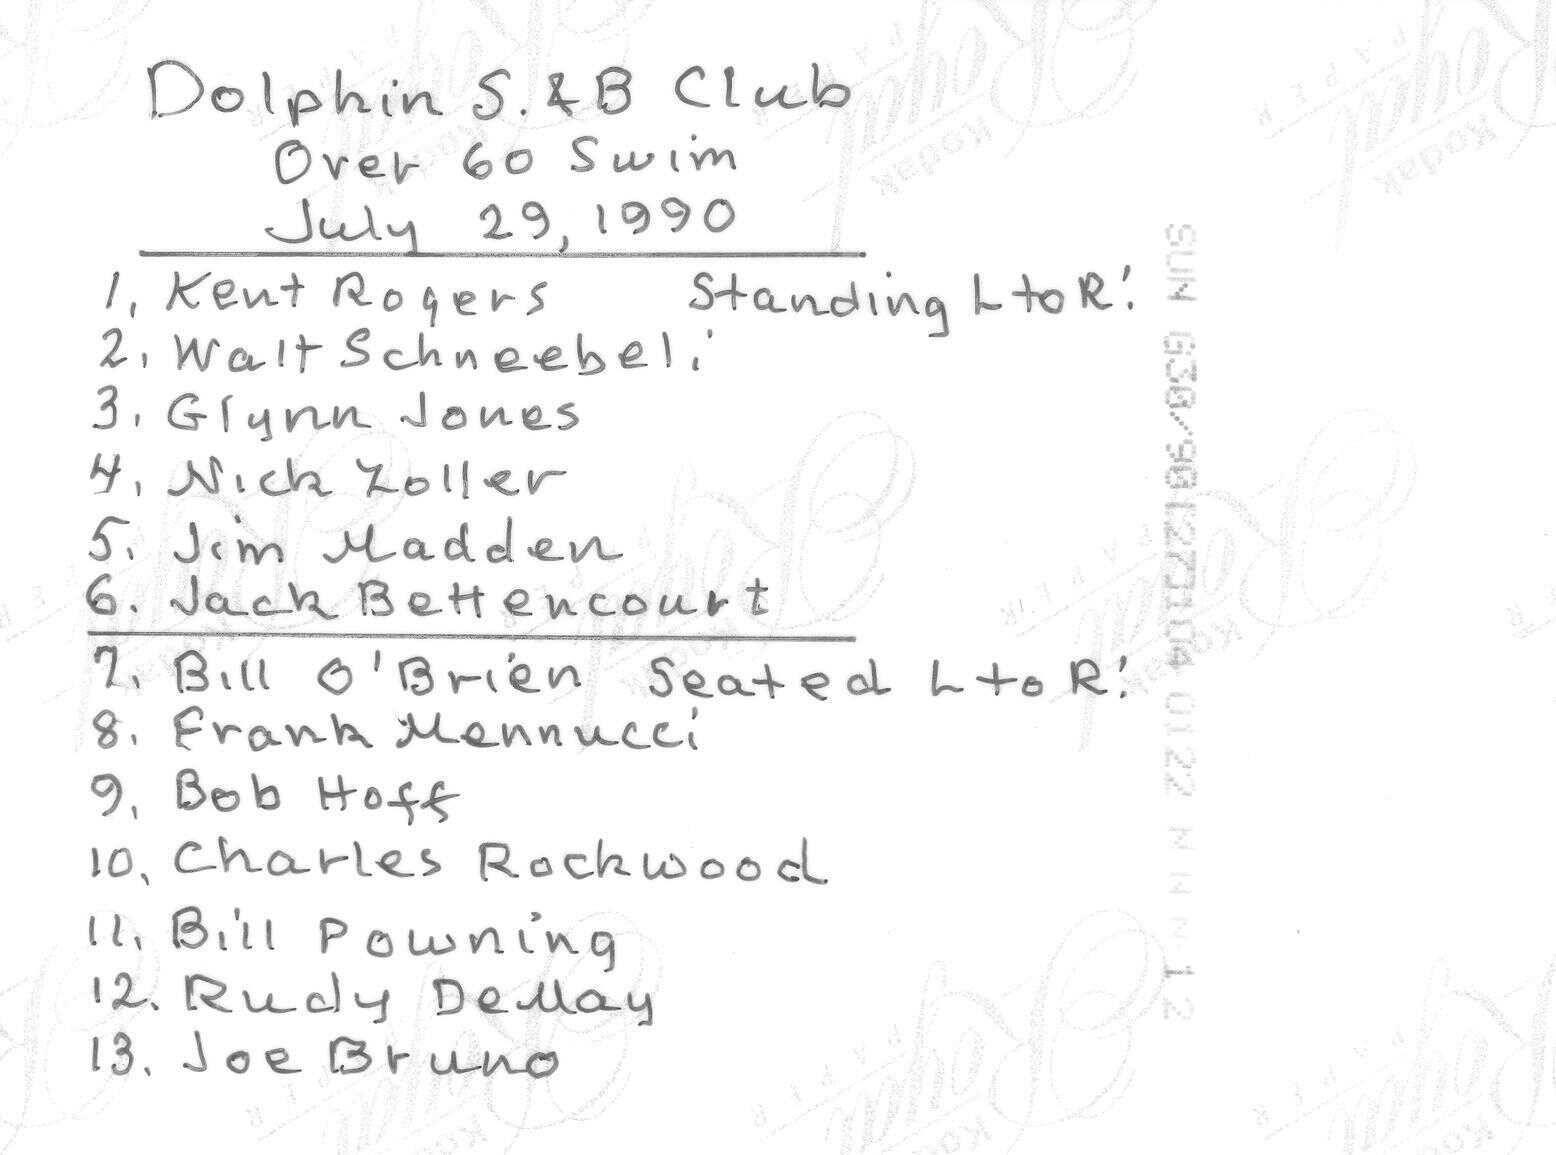 Dolphin S. & B Club
Over 60 Swim
July 29, 1990
1, Kent Rogers Standing L to R:
2, Walt Schneebeli
3, Glynn Jones
4, Nick Zoller
5. Jim Madden
6. Jack Bettencourt
7. Bill O'Brien Seated L to R:
8. Frank Mennucci
9, Bob Hoff
10, Charles Rockwood
11, Bill Powning
12. Rudy DeMay
13. Joe Bruno
Kodak
Royal
PAPER